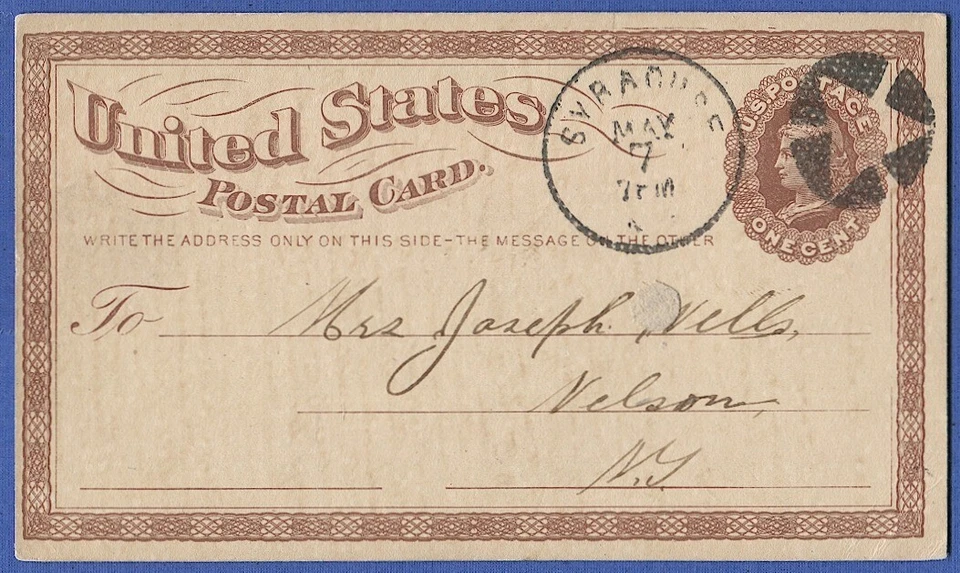 United States
POSTAL CARD.
WRITE THE ADDRESS ONLY ON THIS SIDE-THE MESSAGE ON THE OTHER
SYRACUSE
MAY
7
7PM
U.S. POSTAGE
ONE CENT
To Mrs Joseph Wells,
Nelson,
N.Y.